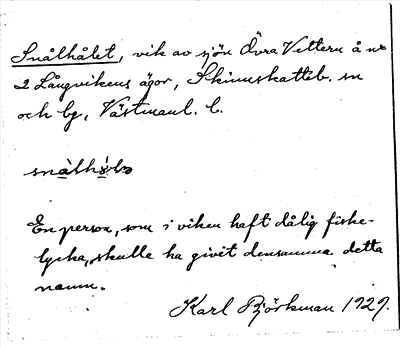 Snålhålet, vik av sjön Övra Vettern å nr
2 Långvikens ägor, Skinnskatteb. sn
och bg, Västmanl. l.
snålhålə
En person, som i viken haft dålig fiske-
lycka, skulle ha givit densamma detta
namn.
Karl Björkman 1929.